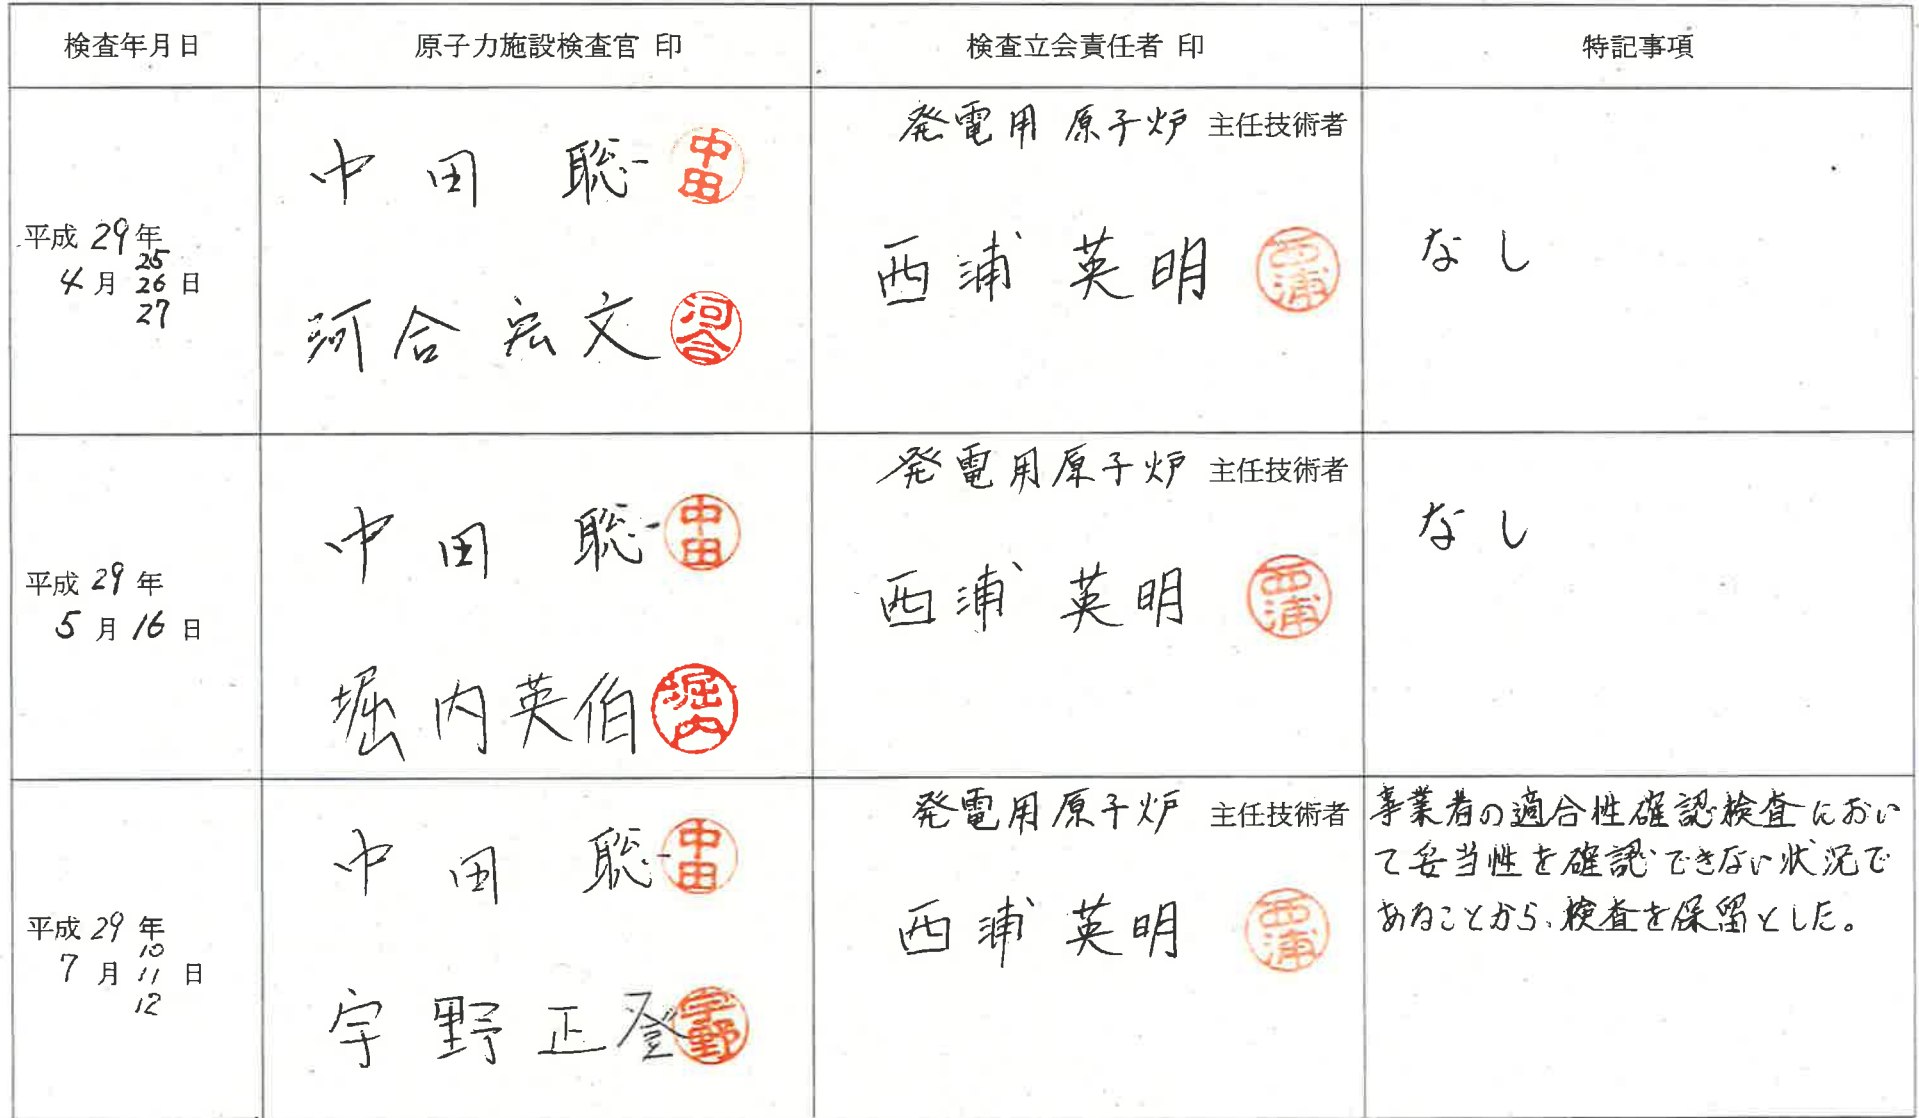 検査年月日
原子力施設検査官 印
検査立会責任者 印
特記事項
平成 29年
4月 25 26 27 日
中田 聡一 中田
河合宏文 河合
発電用原子炉 主任技術者
西浦 英明 西浦
なし
平成 29年
5月16日
中田 聡一 中田
堀内英伯 堀内
発電用原子炉 主任技術者
西浦 英明 西浦
なし
平成 29年
7月 10 11 12 日
中田 聡一 中田
宇野正登 宇野
発電用原子炉 主任技術者
西浦 英明 西浦
事業者の適合性確認検査におい
て妥当性を確認できない状況で
あることから、検査を保留とした。